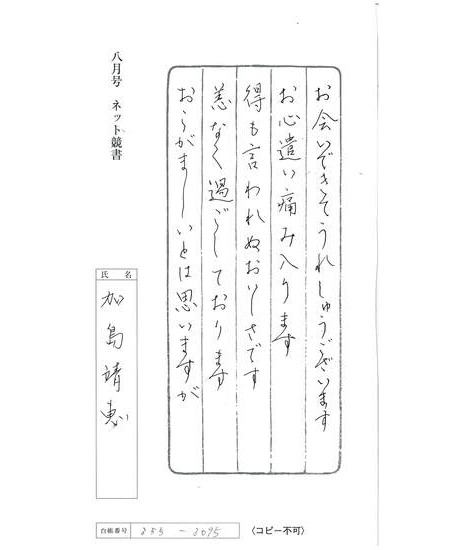 お会いできそうれしゅうございます
お心遣い痛み入ります
得も言われぬおいしさです
恙なく過ごしております
おこがましいとは思いますが
八月号 ネット競書
氏名
加島靖恵
台紙番号 255-2095
〈コピー不可〉